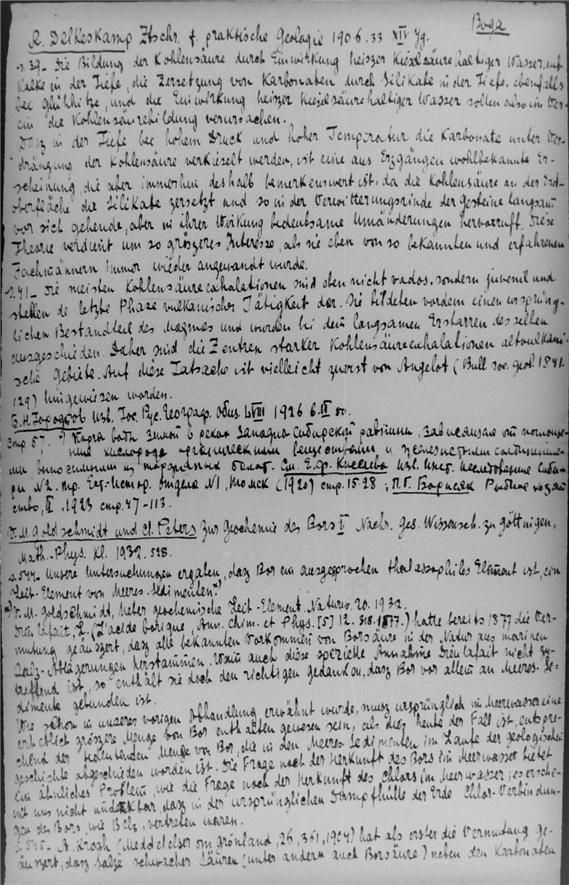 Вода
R. Delkeskamp Ztschr. f. praktische Geologie 1906. 33 XIV Jg.
s. 39_ Die Bildung der Kohlensäure durch Einwirkung heiszer Kieselsäurehaltiger Wasser auf
Kalke in der Tiefe, die Zersetzung von Karbonaten durch Silikate in der Tiefe. ebenfalls
bei Glühhitze, und die Einwirkung heiszer Kieselsäurehaltiger Wasser sollen also im Ver-
ein die Kohlensäurebildung verursachen.
Dasz in der Tiefe bei hohem Druck und hoher Temperatur die Karbonate unter Ver-
drängung der Kohlensäure verkieselt werden, ist eine aus Erzgängen wohlbekannte Er-
scheinung, die aber immerhin deshalb bemerkenswert ist, da die Kohlensäure an der Erd-
oberfläche die Silikate zersetzt und so in der Verwitterungsrinde der Gesteine langsam
vor sich gehende, aber in ihrer Wirkung bedeutsame Umänderungen hervorruft. Diese
Theorie verdient um so gröszeres Interesse, als sie eben von so bekannten und erfahrenen
Fachmännern immer wieder angewandt wurde.
s. 41_ Die meisten Kohlensäureexhalationen sind eben nicht vados. sondern juvenil und
stellen die letzte Phaze vulkanischer Tätigkeit dar. Sie bildeten vordem einen ursprüng-
lichen Bestandteil des Magmas und wurden bei dem langsamen Erstarren desselben
ausgeschieden. Daher sind die Zentren starker Kohlensäureexhalationen altvulkani-
sche Gebiete. Auf diese Tatsache ist vielleicht zuerst von Angelot (Bull soc. geol 1841.
129) hingewiesen worden.
Б.Н. Городков Изв. Гос. Рус. Географ. Общ. LVIII 1926
стр 57. зимой в реках Западно Сибирской равнины, зависящая от
кислорода органическими веществами и
ми выносимыми из торфяных болот. См. Е.Ф. Киселева Изв. Инст. исследования Сиби-
ри N2. тр. Ест-Истор. отдела N1, Томск (1920) стр. 15-28; П.Г. Борисяк Рыбное хозяй
ство, II. 1923 стр. 47-113.
V. M. Goldschmidt und Cl. Peters Zur Geochemie des Bors II Nachr. Ges. Wissensch. zu Göttingen,
Math.-Phys. Kl. 1932. 528.
s. 544 Unsere Untersuchungen ergaben, dasz Bor ein ausgesprochen thalassophiles Element ist, ein
Leit-Element von Meeres-Sedimenten.
V. M. Goldschmidt, Ueber geochemische Leit-Element. Naturw. 20. 1932.
Dieulafait, L. (L'acide borique, Ann. chim. et Phys. [5] 12. 318. 1877.) hatte bereits 1877 die Ver-
mutung geäuszert, dasz alle bekannten Vorkommen von Borsäure in der Natur aus marinen
Salz-Ablagerungen herstammen. Wenn auch diese spezielle Annahme Dieulafait nicht zu-
treffend ist, so enthält sie doch den richtigen gedanken, dasz Bor vor allem an Meeres-Se-
dimente gebunden ist.
Wie schon in unserer vorigen Abhandlung erwähnt wurde, musz ursprünglich im Meerwasser eine
erheblich gröszere Menge von Bor enthalten gewesen sein, als dies heute der Fall ist, entspre-
chend der Menge von Bor, die in den Meeres-Sedimenten im Laufe der geologischen
geschichte abgeschieden worden ist. Die Frage nach der Herkunft des Bors im Meerwasser bietet
ein ähnliches Problem, wie die Frage nach der Herkunft des Chlors im Meerwasser; es erschei-
nt uns nicht undenkbar, dasz in der ursprünglichen Dampfhülle der Erde Chlor-Verbindun-
gen des Bors, wie BCl3, vertreten waren.
s. 545. A. Krogh (Meddelelser om grönland, 26, 361, 1904) hat als erster die Vermutung ge-
äuszert, dasz Salze schwacher Säuren (unter andern auch Borsäure) neben den Karbonaten